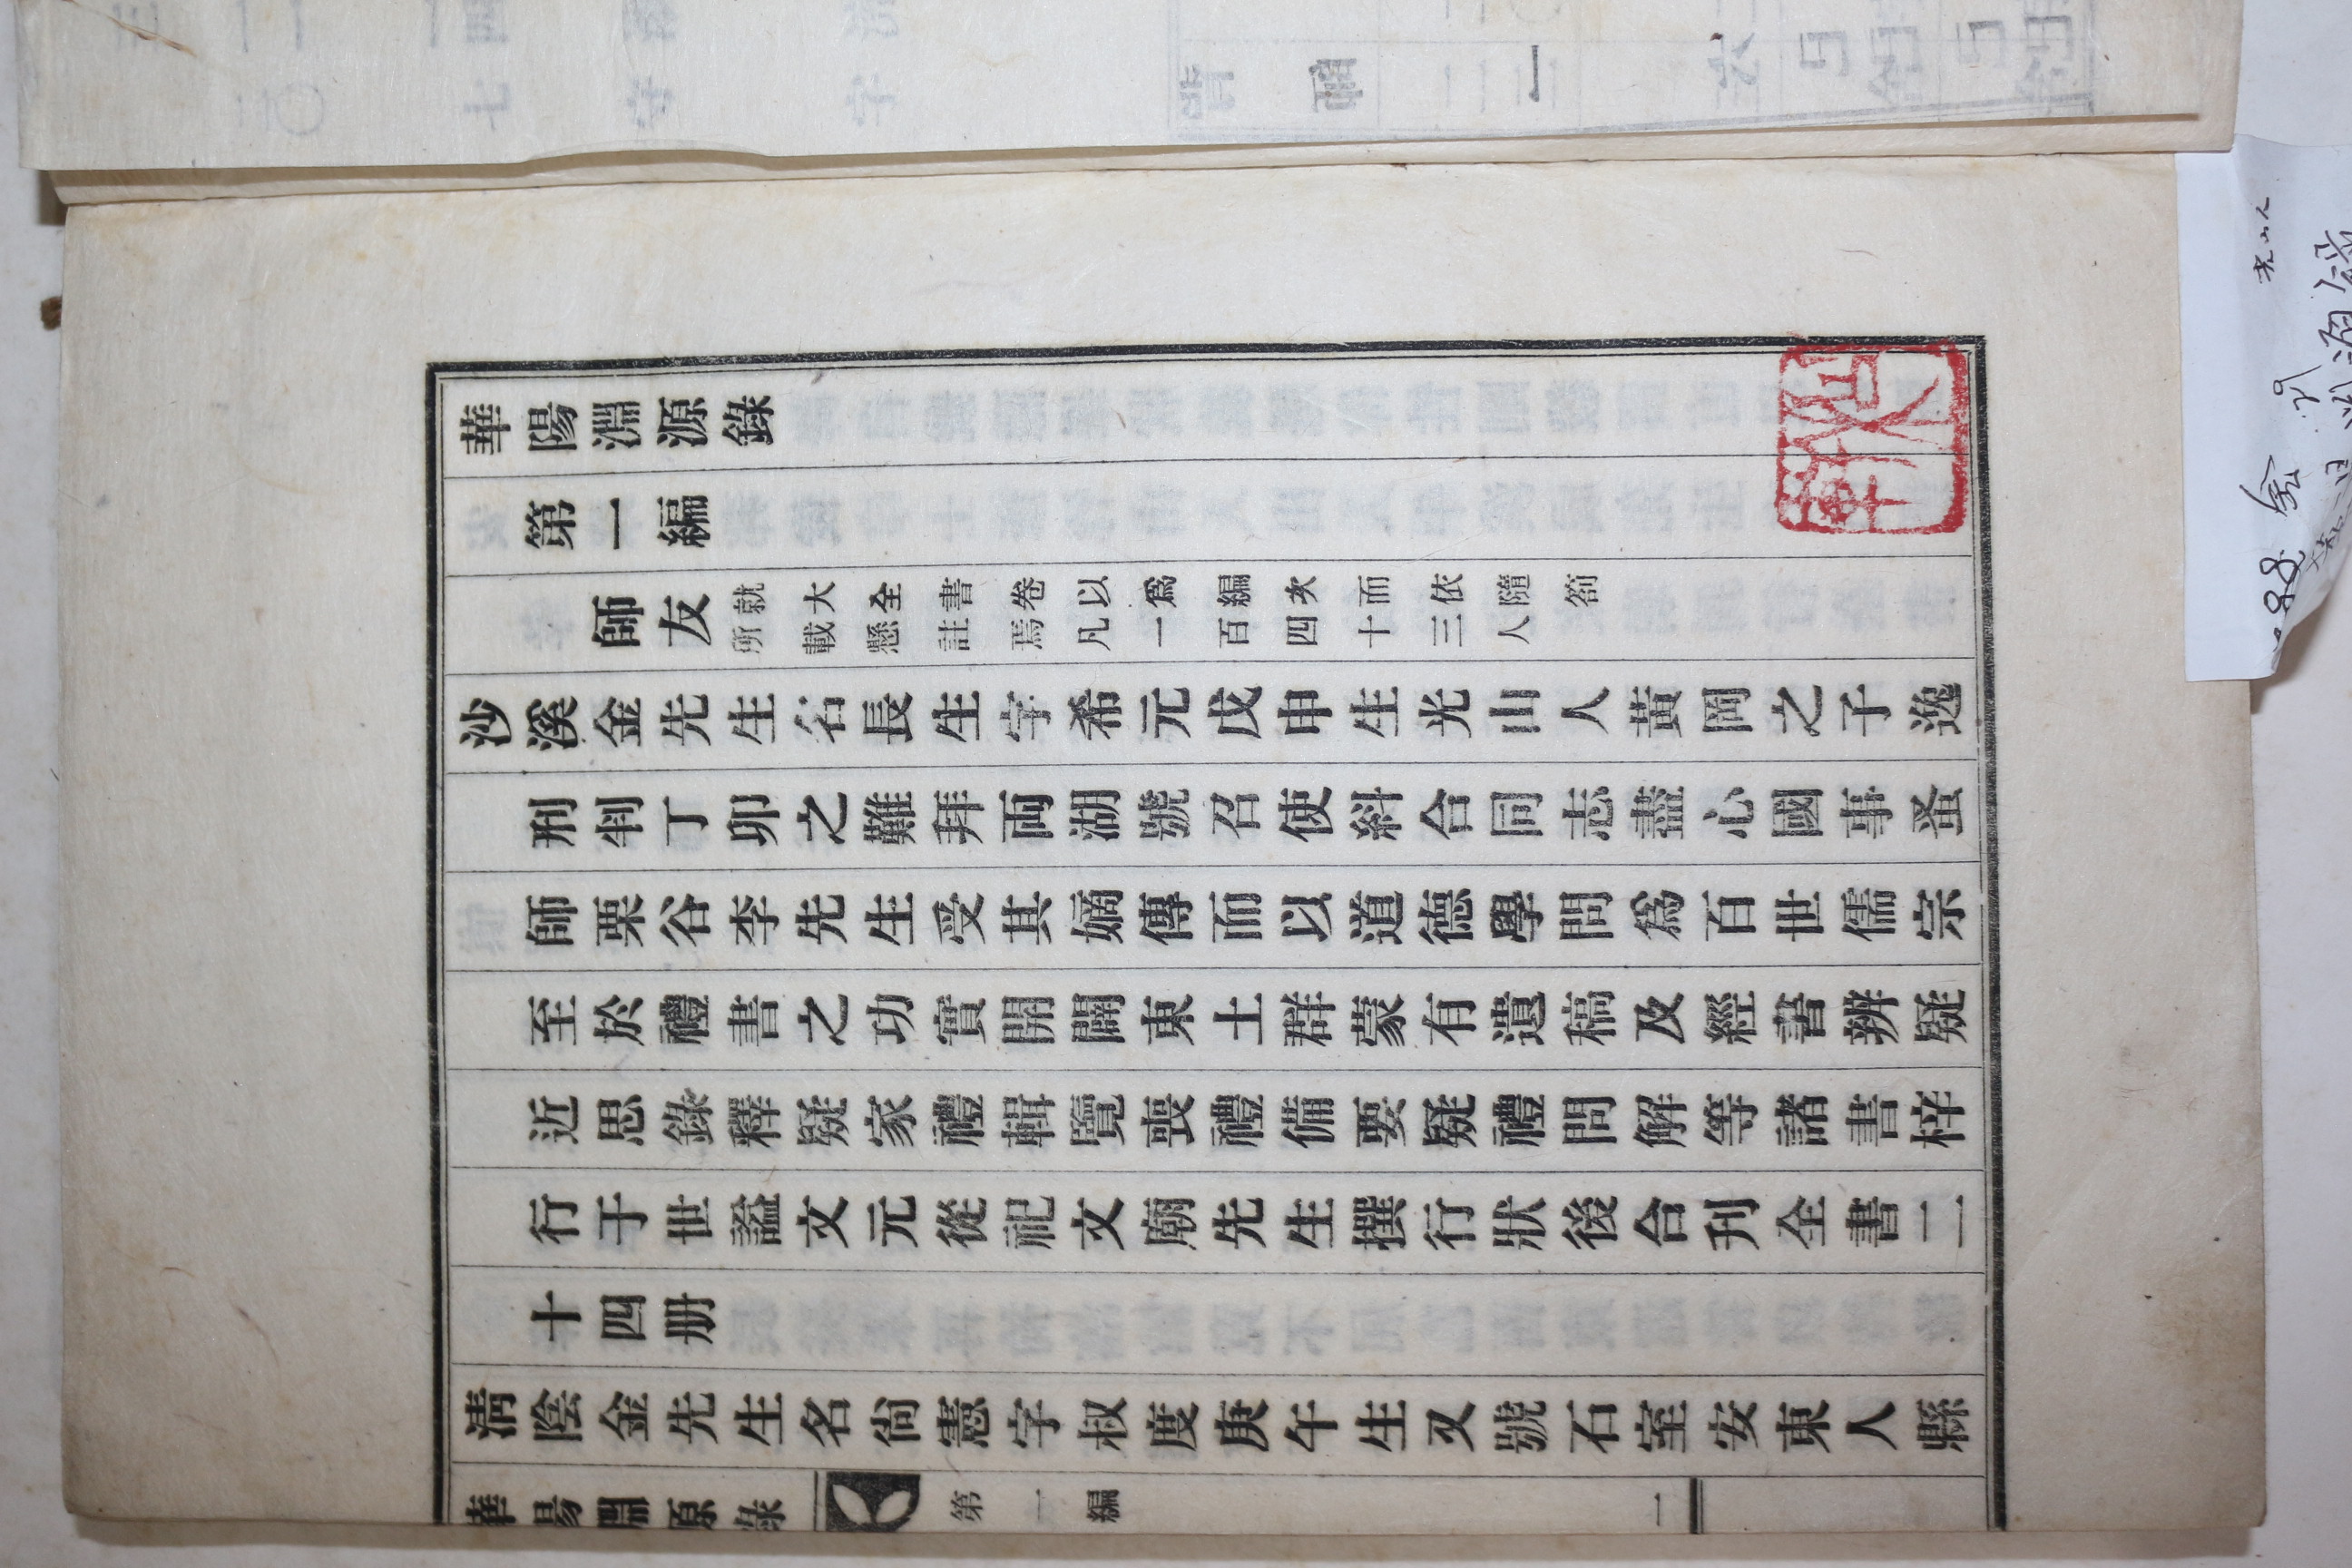 華陽淵源錄
第一編
師友 就大全書卷以爲編次而依隨箚
所載懸註焉凡一百四十三人
沙溪金先生名長生字希元戊申生光山人黃岡之子逸
刑判丁卯之難拜両湖號召使糾合同志盡心國事蚤
師栗谷李先生受其嫡傳而以道德學問爲百世儒宗
至於禮書之功實開闢東土群蒙有遺稿及經書辨疑
近思錄釋疑家禮輯覽喪禮備要疑禮問解等諸書梓
行于世謚文元從祀文廟先生撰行狀後合刊全書二
十四册
淸陰金先生名尙憲字叔度庚午生又號石室安東人縣
華陽淵源錄 第一編 一